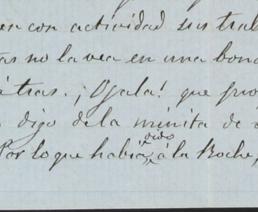 con actividad sus trab
no la vea en una bon
atras. ¡Ojala! que pro
digo de la minita de
Por lo que habia oido á la Roche,